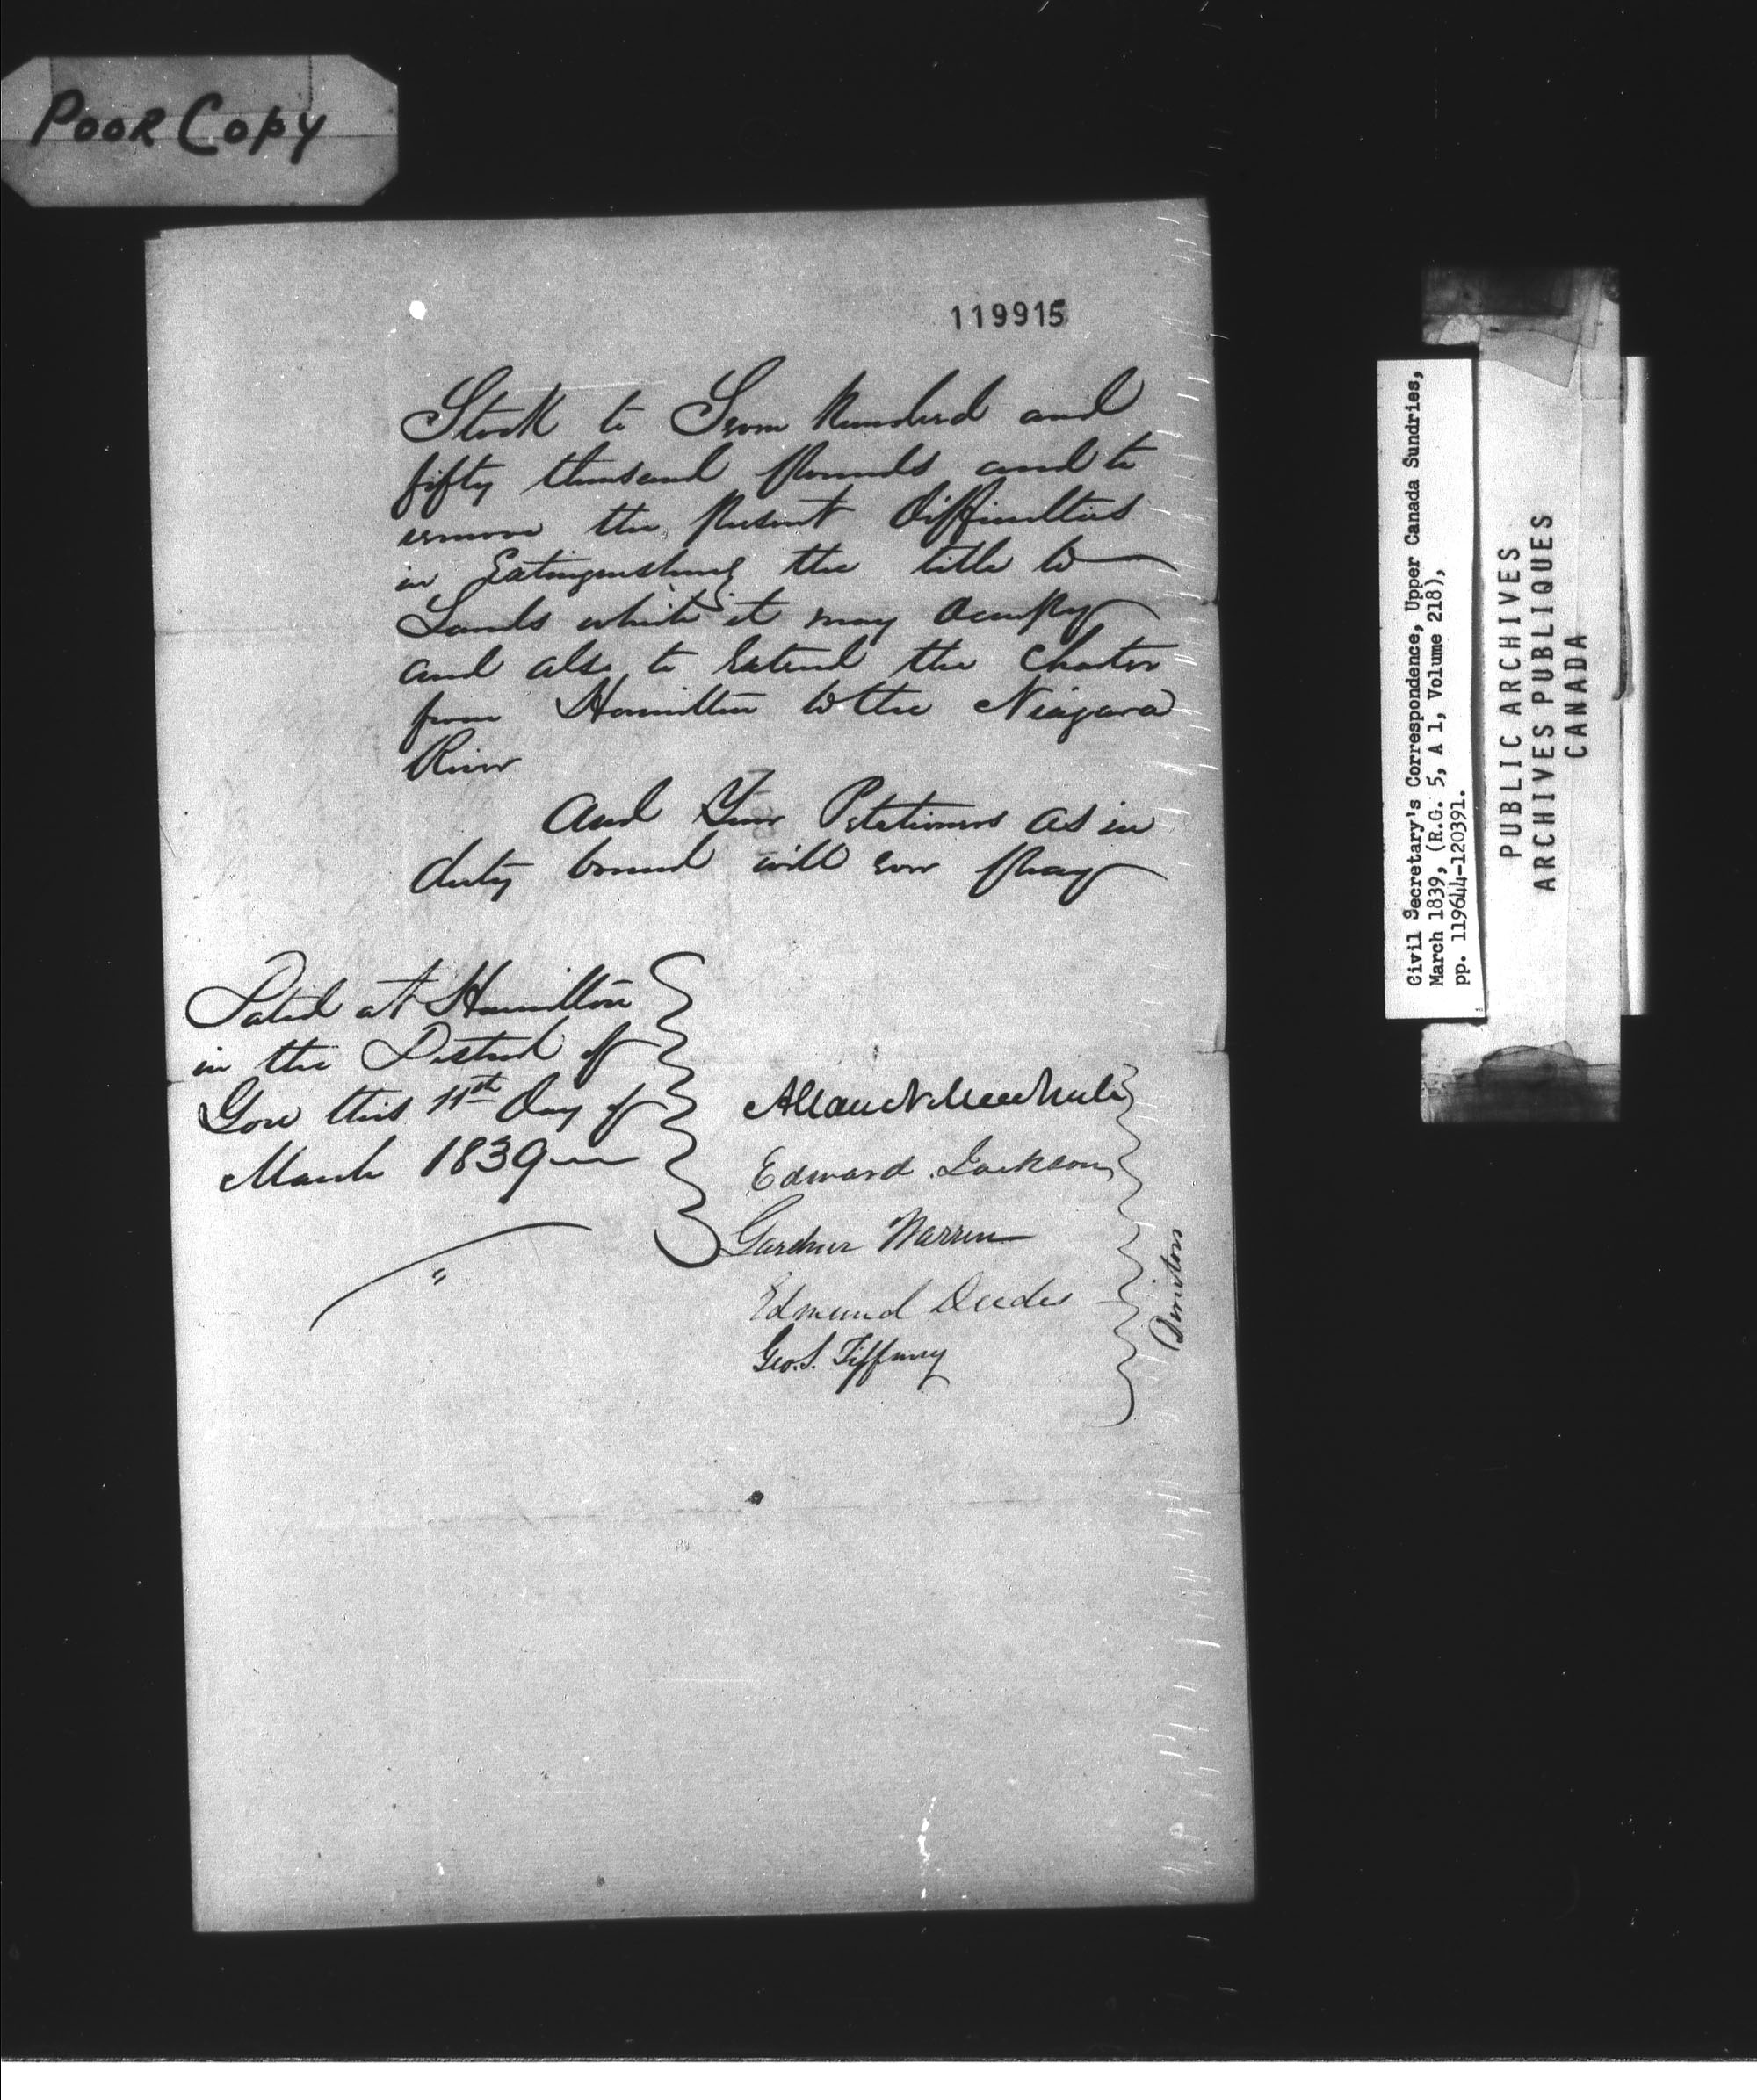 Poor Copy
119915
Stock to Seven hundred and
fifty thousand pounds and to
remove the present difficulties
in Extinguishing the title to
Lands which it may occupy
and also to Extend the Charter
from Hamilton to the Niagara
River
And Your Petitioners as in
duty bound will ever pray
Dated at Hamilton
in the District of
Gore this 11th day of
March 1839
Allan N. MacNab
Edward Jackson
Gardner Warren
Edmund Deedes
Geo. S. Tiffany
Directors
Civil Secretary's Correspondence, Upper Canada Sundries,
March 1839, (R.G. 5, A 1, Volume 218),
pp. 119644-120391.
PUBLIC ARCHIVES
ARCHIVES PUBLIQUES
CANADA